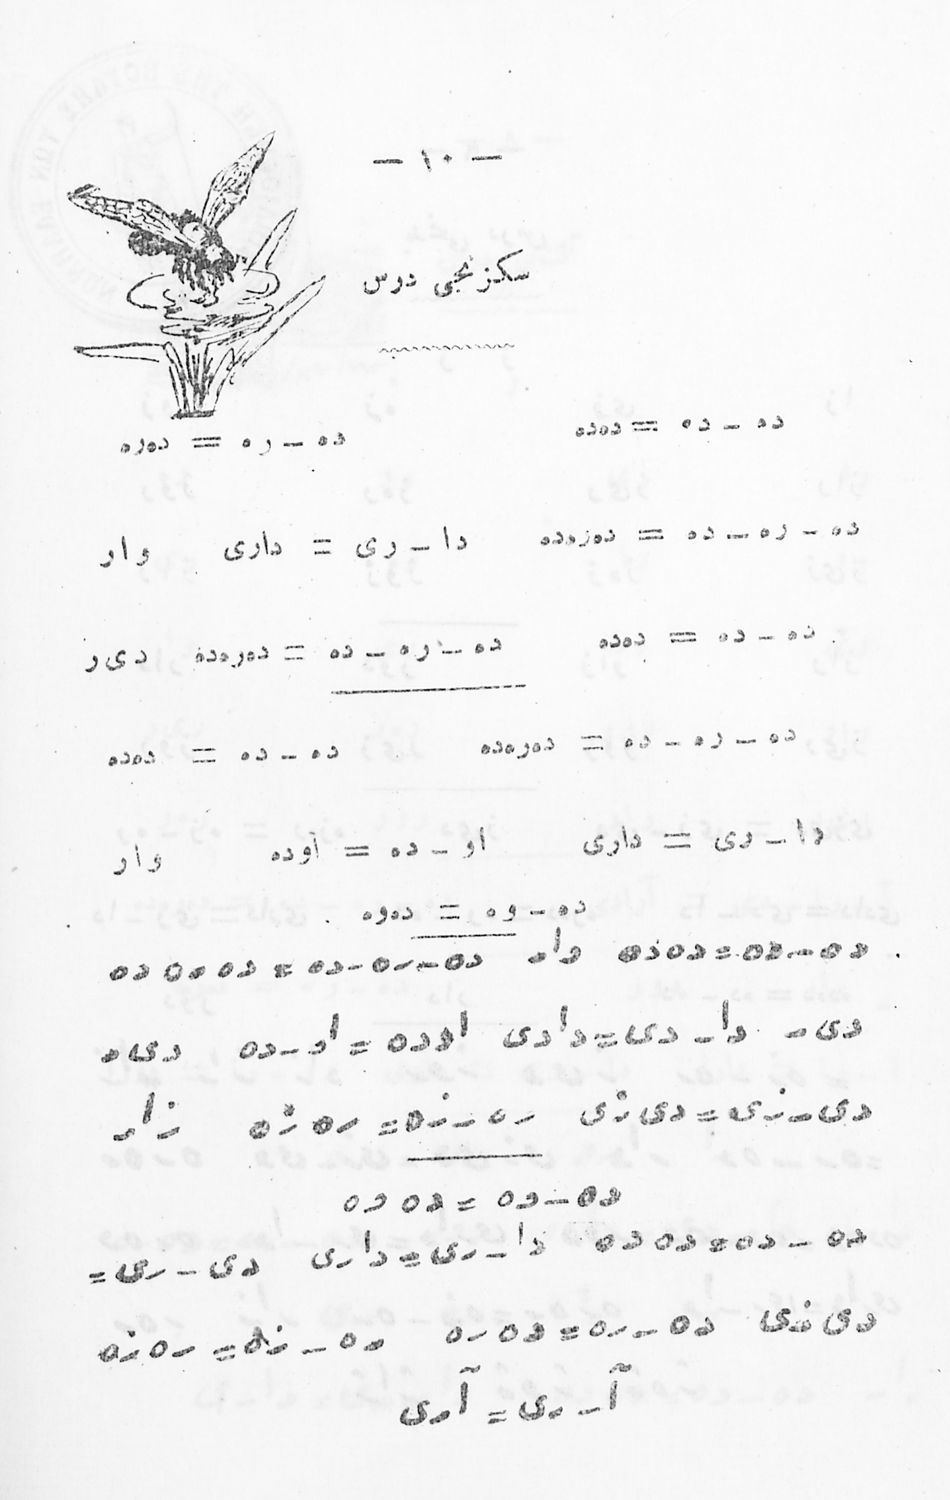 — ١٠ —
سکزنجی درس
ده ـ ده = دەدە ده ـ ره = دەرە
ده ـ ره ـ ده = دەرەدە دا ـ ری = داری وار
ده ـ ده = دەدە ده ـ ره ـ ده = دەرەدە دی ر
ده ـ ره ـ ده = دەرەدە ده ـ ده = دەدە
دا ـ ری = داری او ـ ده = اوده وار
ده ـ وه = دەوە
ده ـ ده = دەدە وار ده ـ ره ـ ده = دەرەدە
دی ر دا ـ دی = دادی اوده = او ـ ده دی ر
دی ـ زی = دی زی ره ـ زه = رە زە زار
ده ـ ده = دە دە
ده ـ ده = دە دە دا ـ ری = داری دی ـ زی =
دی زی ده ـ ره = دە رە ره ـ زه = رە زە
آ ـ ری = آری